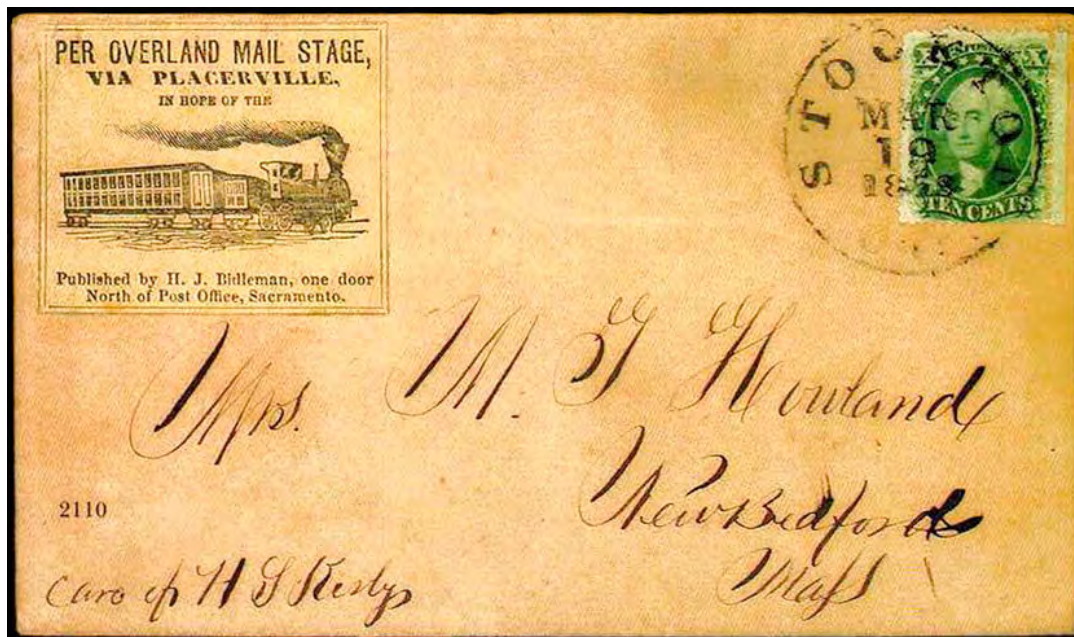 PER OVERLAND MAIL STAGE,
VIA PLACERVILLE,
IN HOPE OF THE
Published by H. J. Bidleman, one door
North of Post Office, Sacramento.
STOCKTON
MAR
19
TEN CENTS
Mrs. M. G Howland
New Bedford
Mass
2110
care of H S